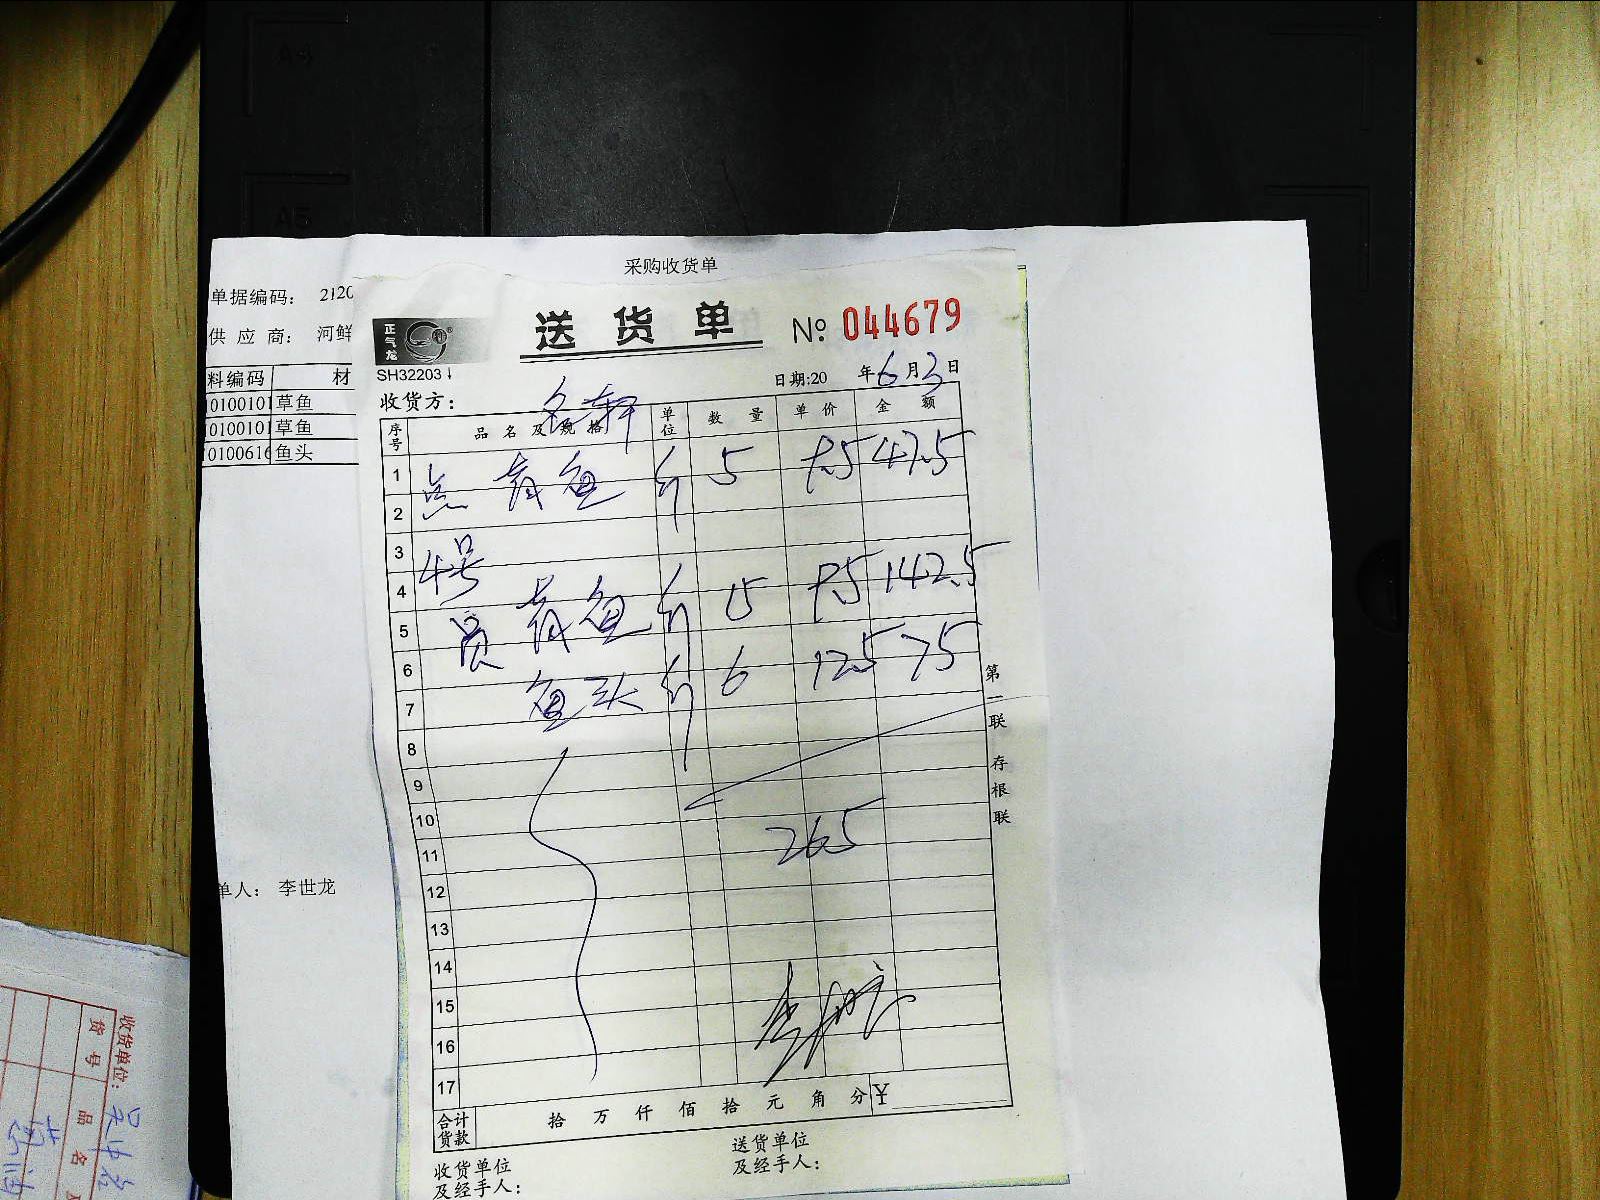 A4
A5
采购收货单
单据编码： 2120
供 应 商： 河鲜
料编码 材
0100101 草鱼
0100101 草鱼
0100616 鱼头
单人： 李世龙
正气龙
SH32203
送 货 单 № 044679
日期:20 年6月3日
收货方： 名轩
序号 品 名 及 规 格 单位 数 量 单 价 金 额
1 点 青鱼 斤 5 9.5 47.5
2
3 4号
4
5 员 青鱼 斤 15 9.5 142.5
6
7 鱼头 斤 6 12.5 75
8
9
10
11 265
12
13
14
15
16
17
合计货款 拾 万 仟 佰 拾 元 角 分 ¥
收货单位
及经手人：
送货单位
及经手人：
第一联 存根联
收货单位：
货 号 品 名